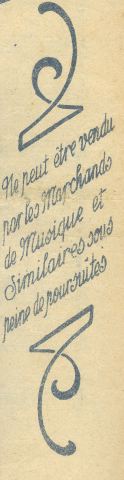 Ne peut être vendu
par les Marchands
de Musique et
Similaires sous
peine de poursuites